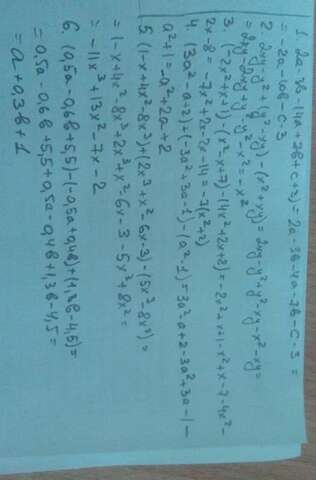 1. 2a-3b-(4a+2b+c+3) = 2a-3b-4a-2b-c-3 =
= -2a-10b-c-3
2. (2xy-y²)+(y²-xy)-(x²+xy) = 2xy-y²+y²-xy-x²-xy=
= 2xy-2xy+y²-y²-x²=-x²
3. (-2x²+x+1)-(x²-x+7)-(4x²+2x+8)=-2x²+x+1-x²+x-7-4x²-
2x-8=-7x²+2x-2x-14=-7(x²+2)
4. (3a²-a+2)+(-3a²+3a-1)-(a²-1)=3a²-a+2-3a²+3a-1-
a²+1=-a²+2a+2
5. (1-x+4x²-8x³)+(2x³+x²-6x-3)-(5x³-8x²)=
=1-x+4x²-8x³+2x³+x²-6x-3-5x³+8x²=
=-11x³+13x²-7x-2
6. (0,5a-0,6b+5,5)-(-0,5a+0,4b)+(1,3b-4,5)=
=0,5a-0,6b+5,5+0,5a-0,4b+1,3b-4,5=
=a+0,3b+1